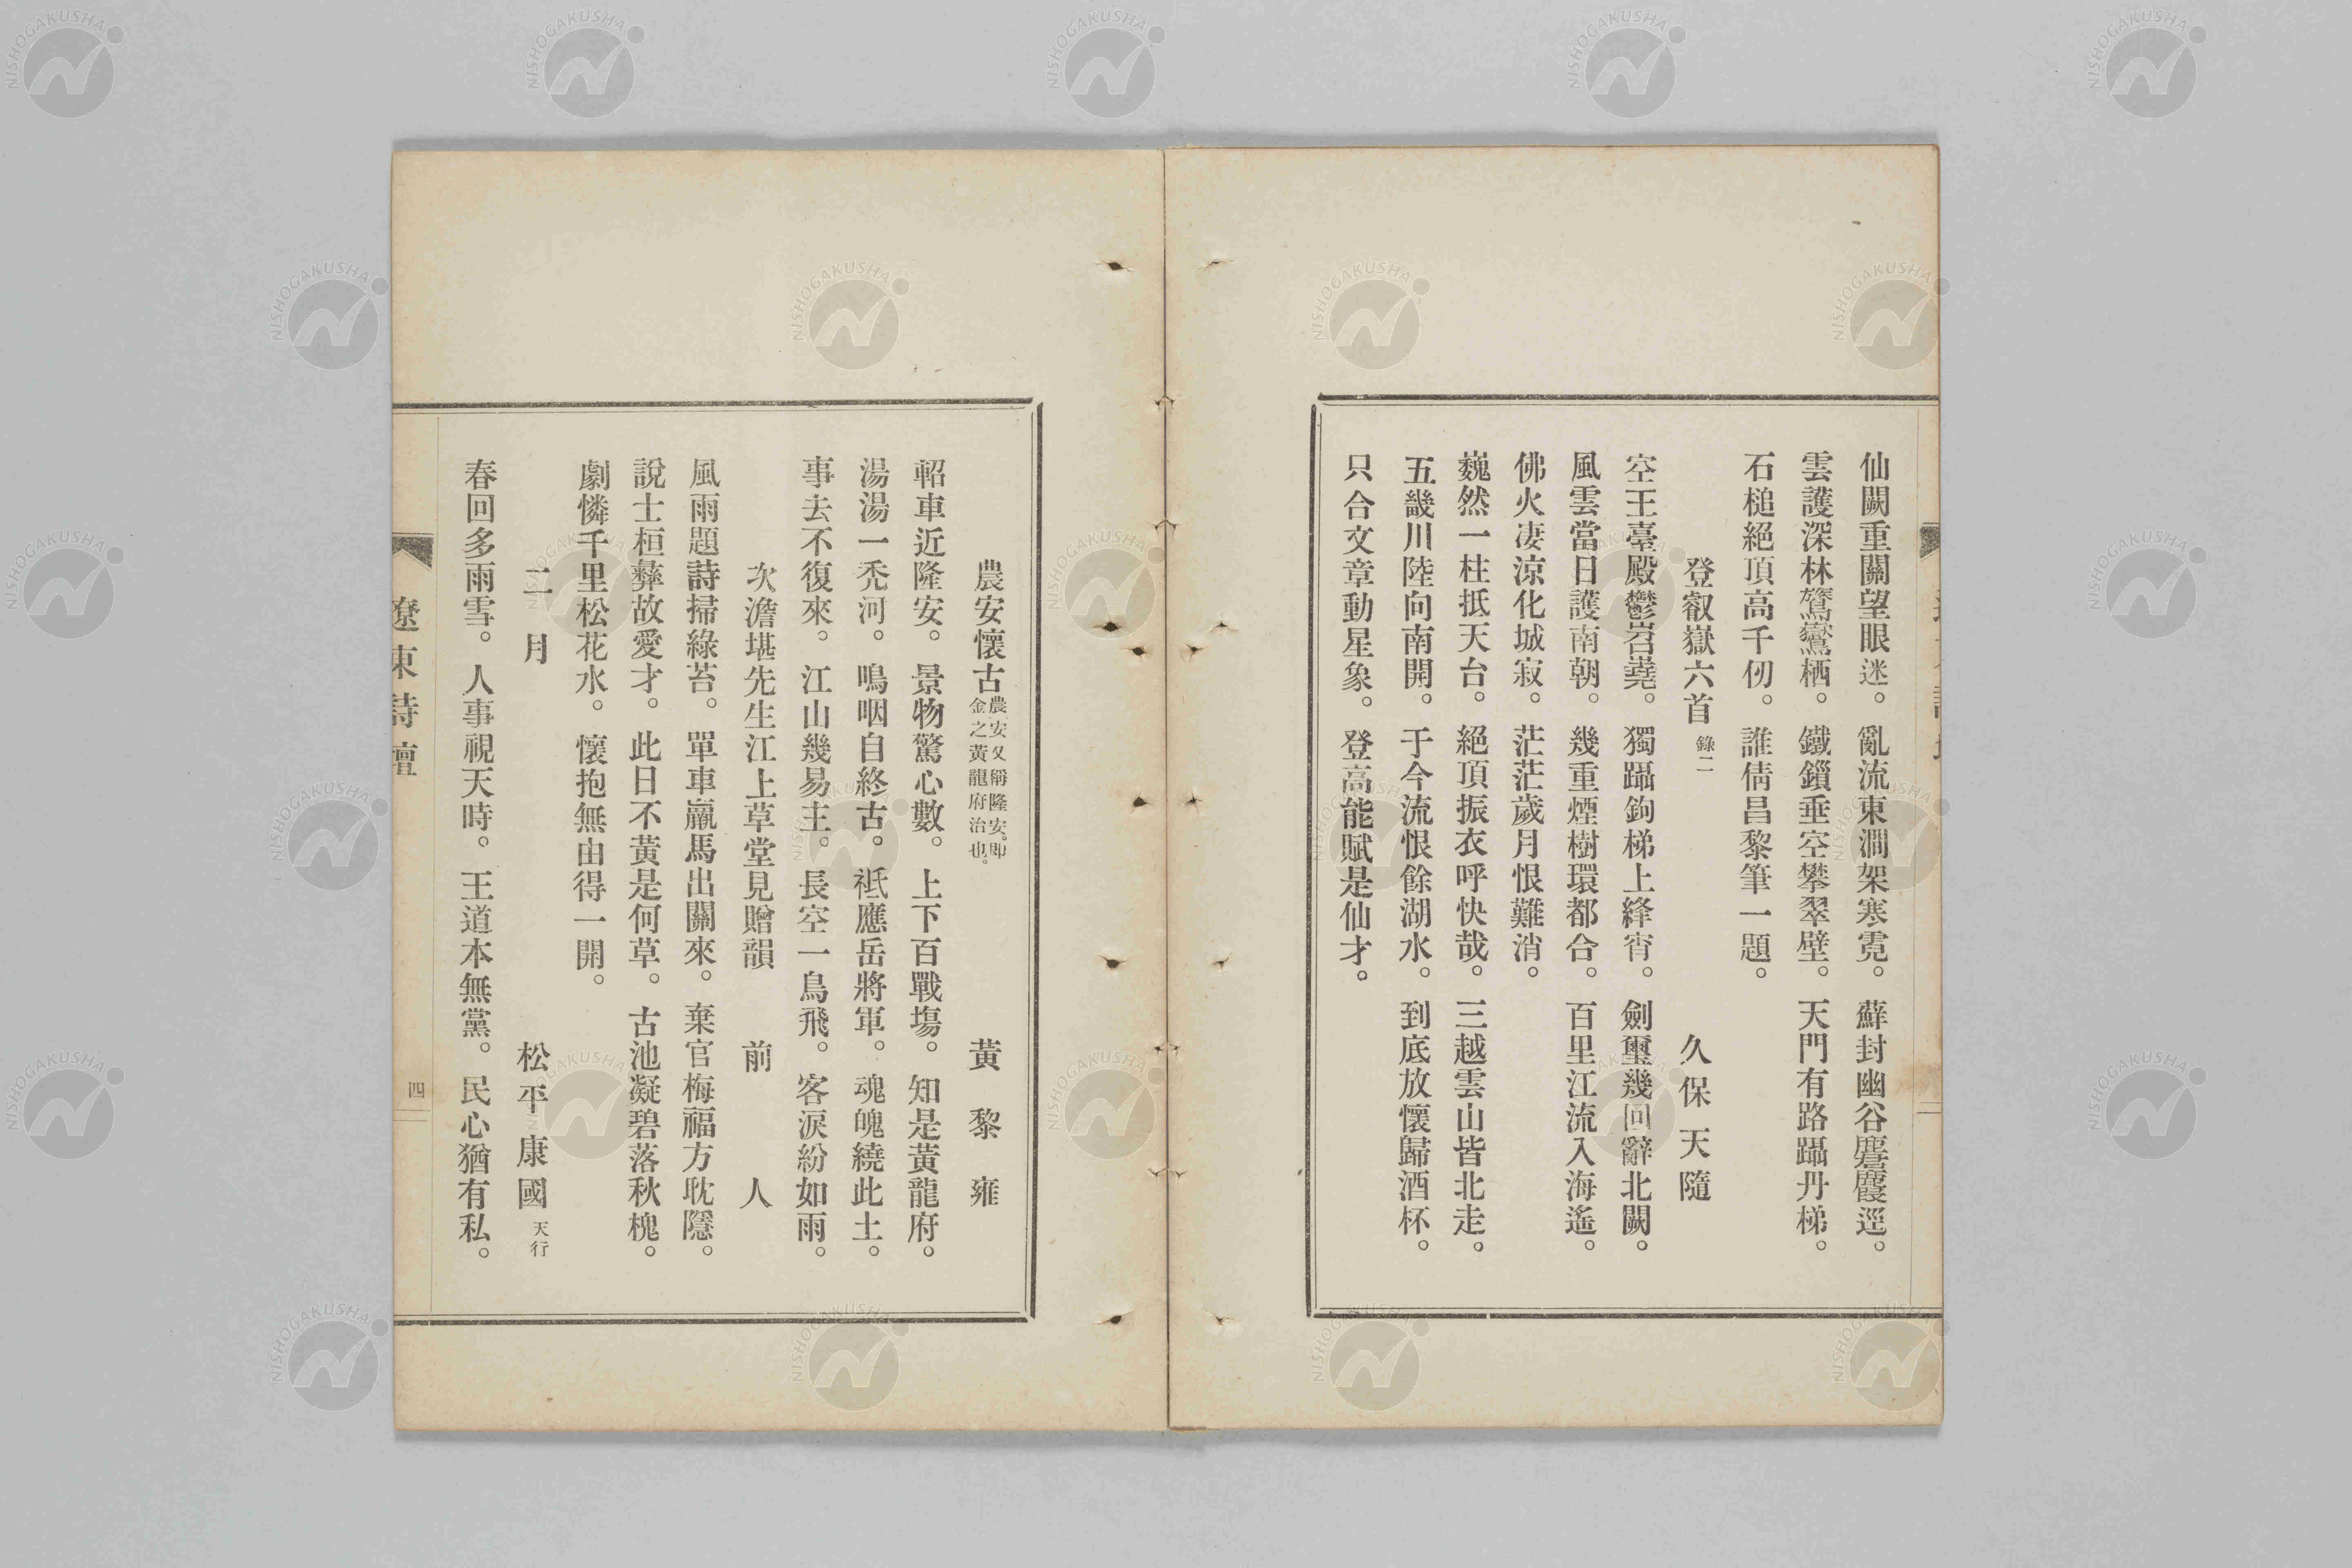 仙闕重關望眼迷。亂流東澗架寒霓。蘚封幽谷麏麚逕。
雲護深林鸞鶴栖。鐵鎖垂空攀翠壁。天門有路躡丹梯。
石槌絕頂高千仞。誰倩昌黎筆一題。
登叡嶽六首 錄二 久保天隨
空王臺殿鬱岧嶢。獨躡鉤梯上絳霄。劍璽幾回辭北闕。
風雲當日護南朝。幾重煙樹環都合。百里江流入海遙。
佛火凄涼化城寂。茫茫歲月恨難消。
巍然一柱抵天台。絕頂振衣呼快哉。三越雲山皆北走。
五畿川陸向南開。于今流恨餘湖水。到底放懷歸酒杯。
只合文章動星象。登高能賦是仙才。
農安懷古 農安又稱隆安。即金之黃龍府治也。 黃黎雍
軺車近隆安。景物驚心數。上下百戰塲。知是黃龍府。
湯湯一禿河。鳴咽自終古。祗應岳將軍。魂魄繞此土。
事去不復來。江山幾易主。長空一鳥飛。客淚紛如雨。
次澹堪先生江上草堂見贈韻 前人
風雨題詩掃綠苔。單車羸馬出關來。棄官梅福方耽隱。
說士桓彝故愛才。此日不黃是何草。古池凝碧落秋槐。
劇憐千里松花水。懷抱無由得一開。
二月 松平康國 天行
春回多雨雪。人事視天時。王道本無黨。民心猶有私。
遼東詩壇
四
NISHOGAKUSHA